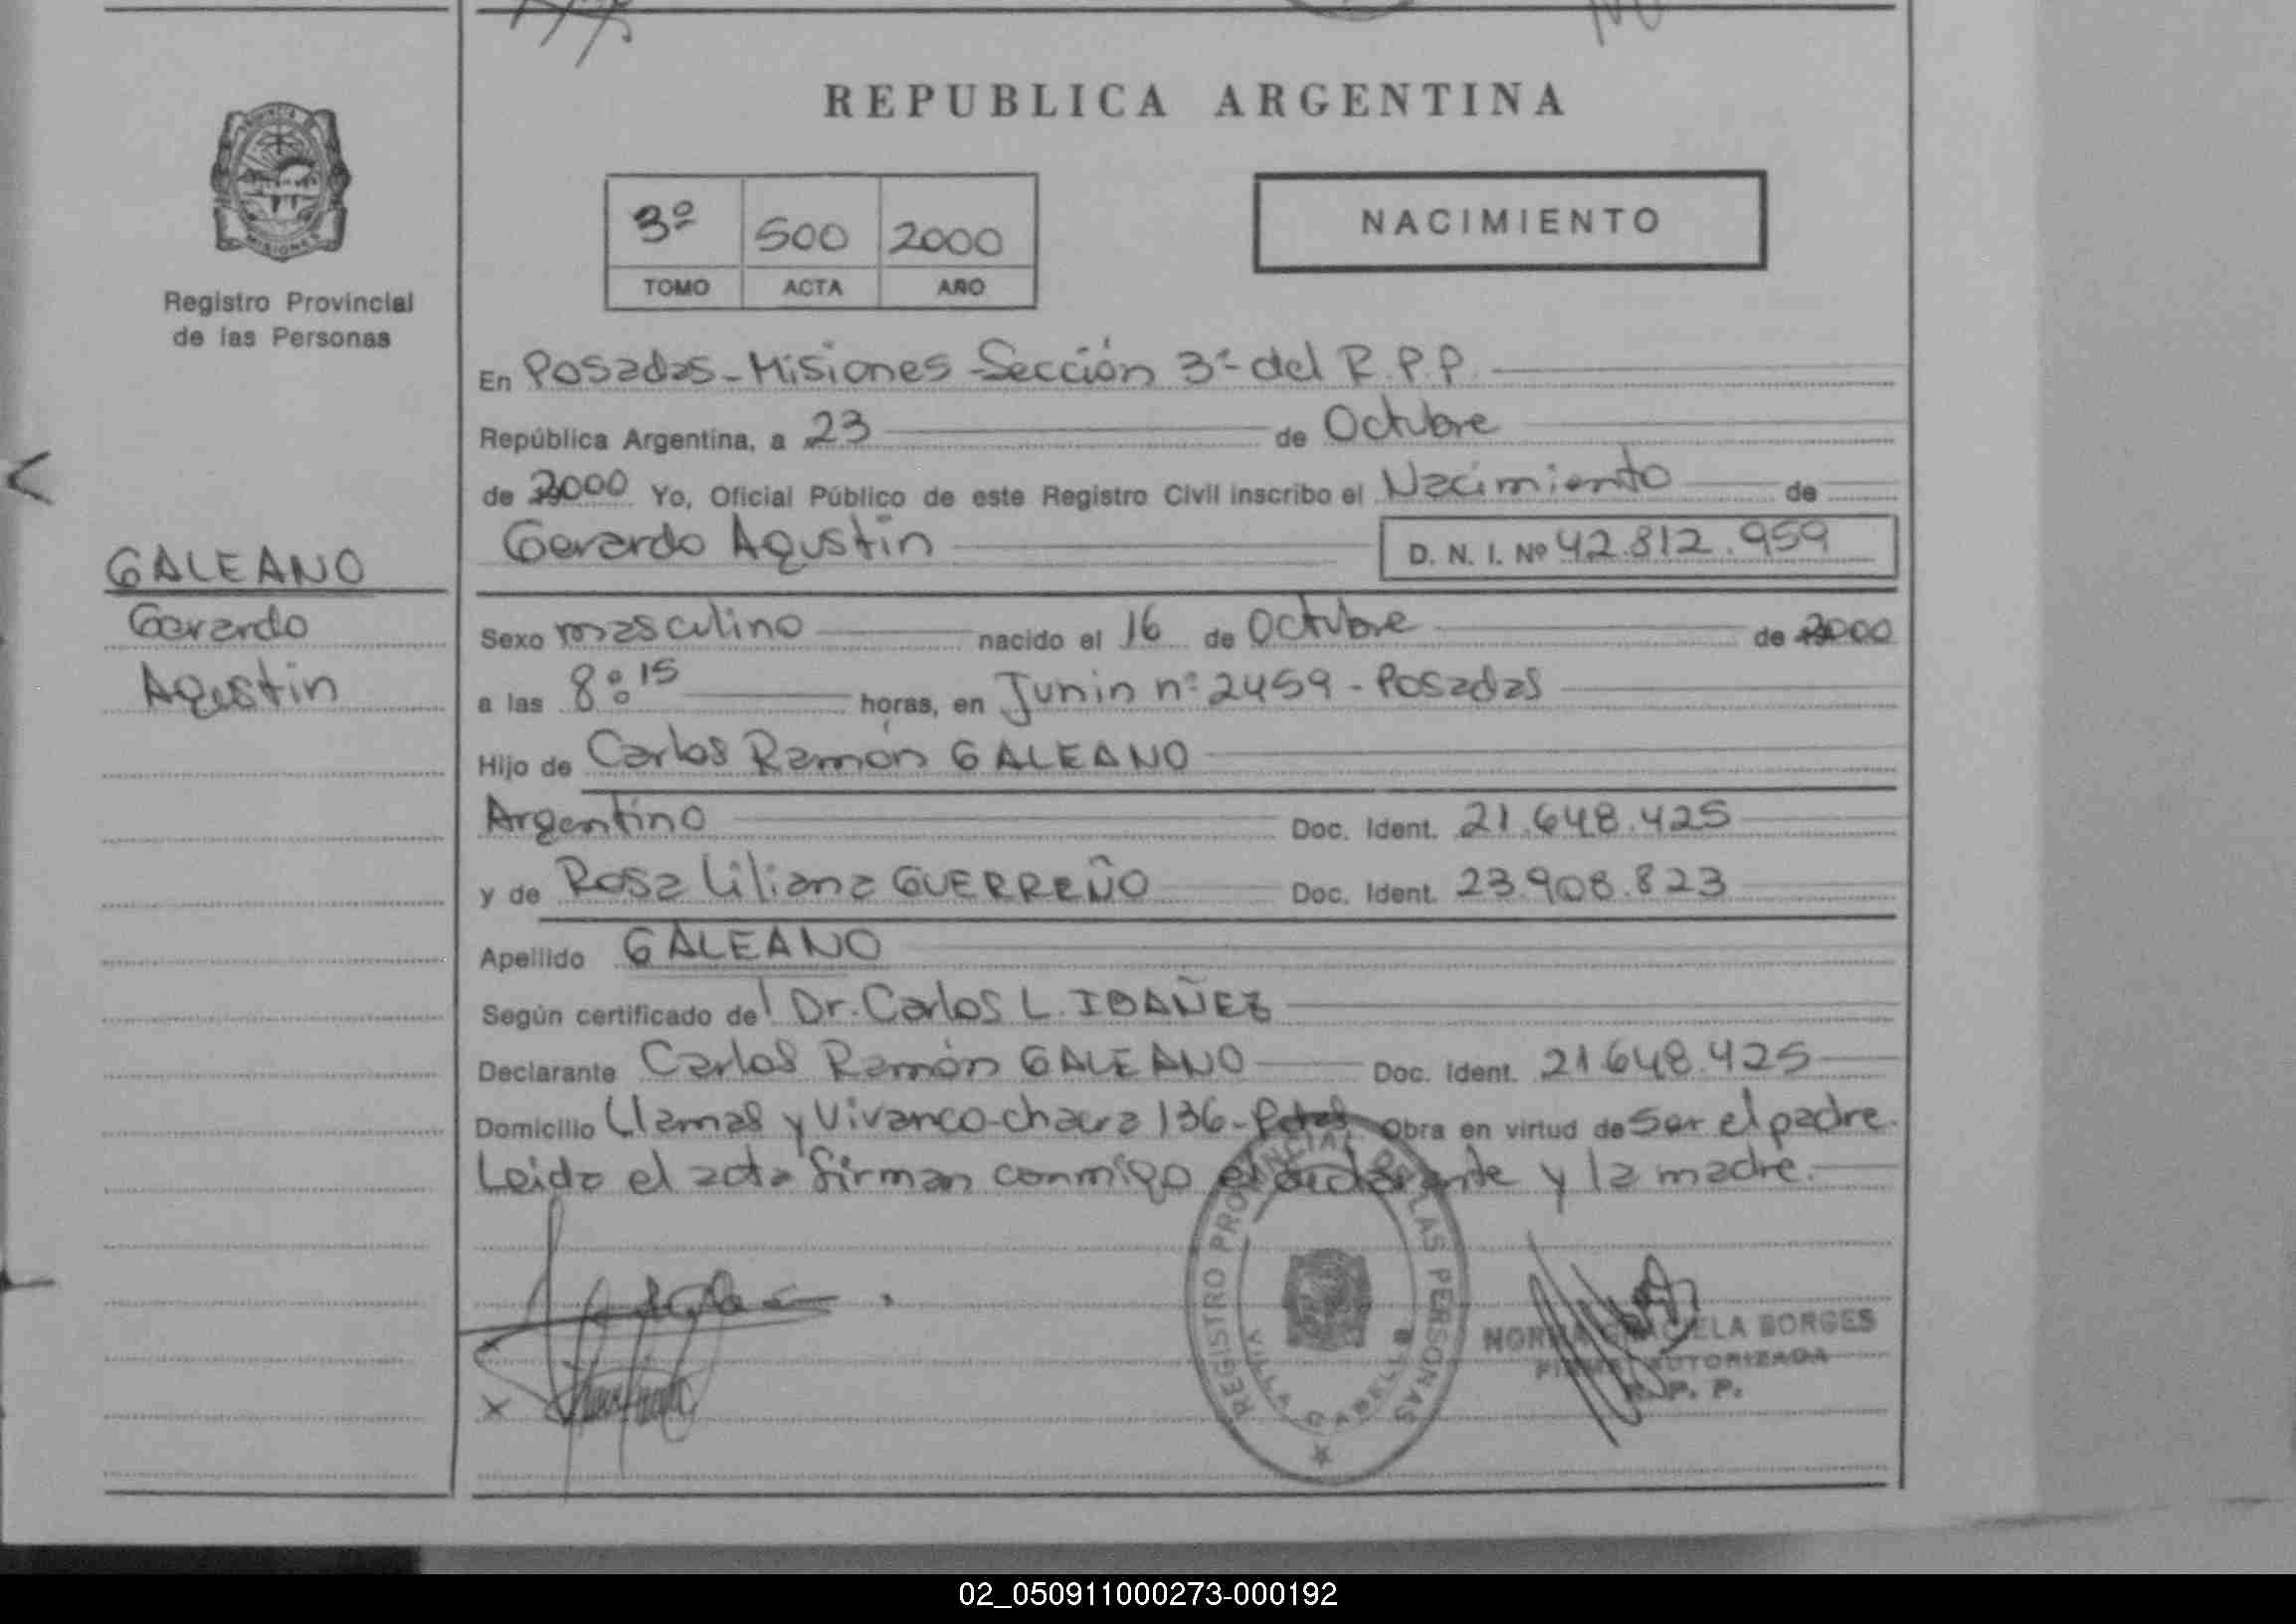 REPUBLICA ARGENTINA
3º 500 2000
TOMO ACTA AÑO
NACIMIENTO
Registro Provincial
de las Personas
En Posadas - Misiones - Sección 3ª del R.P.P.
República Argentina, a 23 de Octubre
de 2000 Yo, Oficial Público de este Registro Civil inscribo el Nacimiento de
Gerardo Agustin D. N. I. Nº 42.812.959
GALEANO
Gerardo
Agustin
Sexo masculino nacido el 16 de Octubre de 2000
a las 8:15 horas, en Junin nº 2459 - Posadas
Hijo de Carlos Ramón GALEANO
Argentino Doc. Ident. 21.648.425
y de Rosa Liliana GUERREÑO Doc. Ident. 23.908.823
Apellido GALEANO
Según certificado del Dr. Carlos L. IBAÑEZ
Declarante Carlos Ramón GALEANO Doc. Ident. 21.648.425
Domicilio Llamas y Vivanco - chacra 136 - Pdas Obra en virtud de ser el padre.
Leida el acta firman conmigo el declarante y la madre.
REGISTRO PROVINCIAL DE LAS PERSONAS
NORMA GRACIELA BORGES
FIRMA AUTORIZADA
R. P. P.
02_050911000273-000192